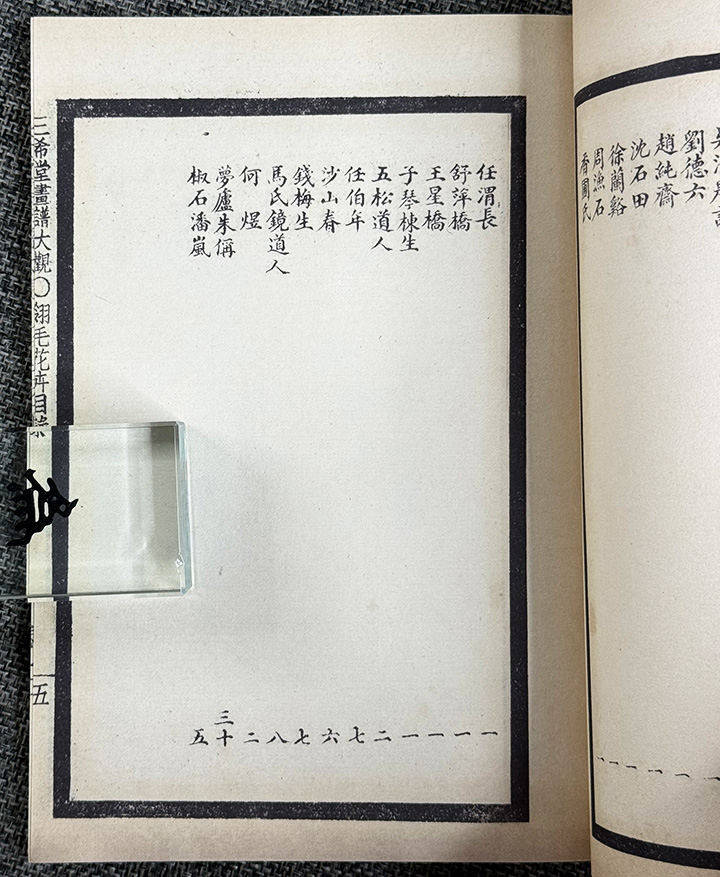 劉德六 一
趙純齋 一
沈石田 一
徐蘭谿 一
周漁石 一
任渭長 一
舒萍橋 一
王星橋 一
子琴棟生 一
五松道人 二
任伯年 七
沙山春 六
錢梅生 七
馬氏鏡道人 八
何煜 二
夢廬朱偁 三十
椒石潘嵐 五
三希堂畫譜大觀〇翎毛花卉目錄 五